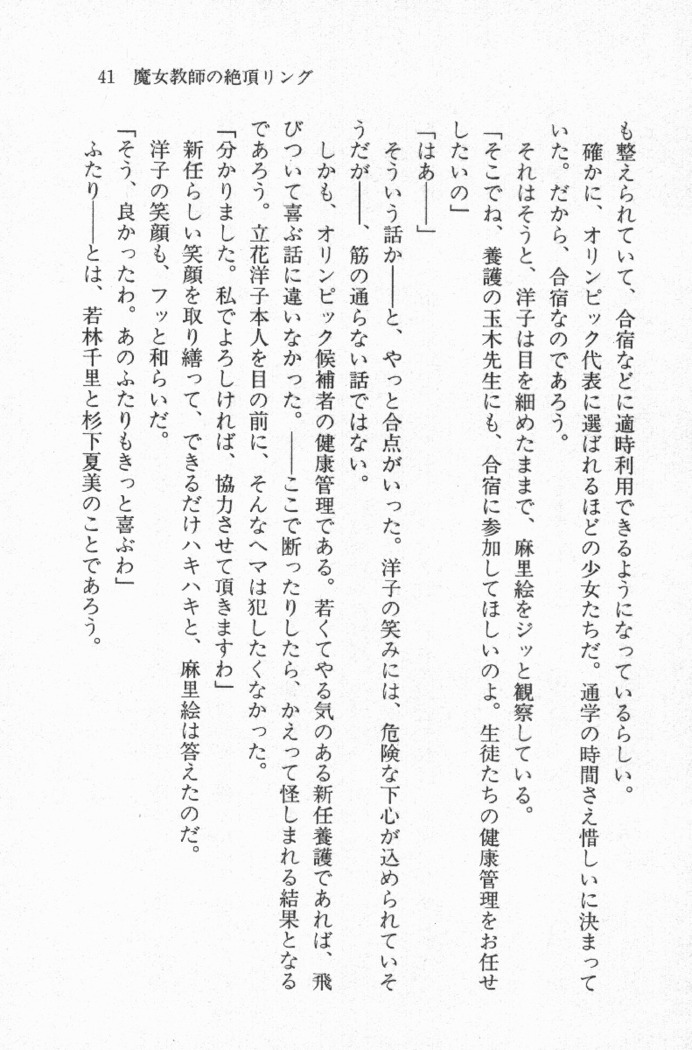 41 魔女教師の絶頂リング
も整えられていて、合宿などに適時利用できるようになっているらしい。
確かに、オリンピック代表に選ばれるほどの少女たちだ。通学の時間さえ惜しいに決まって
いた。だから、合宿なのであろう。
それはそうと、洋子は目を細めたままで、麻里絵をジッと観察している。
「そこでね、養護の玉木先生にも、合宿に参加してほしいのよ。生徒たちの健康管理をお任せ
したいの」
「はあ――」
そういう話か――と、やっと合点がいった。洋子の笑みには、危険な下心が込められていそ
うだが――、筋の通らない話ではない。
しかも、オリンピック候補者の健康管理である。若くてやる気のある新任養護であれば、飛
びついて喜ぶ話に違いなかった。――ここで断ったりしたら、かえって怪しまれる結果となる
であろう。立花洋子本人を目の前に、そんなヘマは犯したくなかった。
「分かりました。私でよろしければ、協力させて頂きますわ」
新任らしい笑顔を取り繕って、できるだけハキハキと、麻里絵は答えたのだ。
洋子の笑顔も、フッと和らいだ。
「そう、良かったわ。あのふたりもきっと喜ぶわ」
ふたり――とは、若林千里と杉下夏美のことであろう。